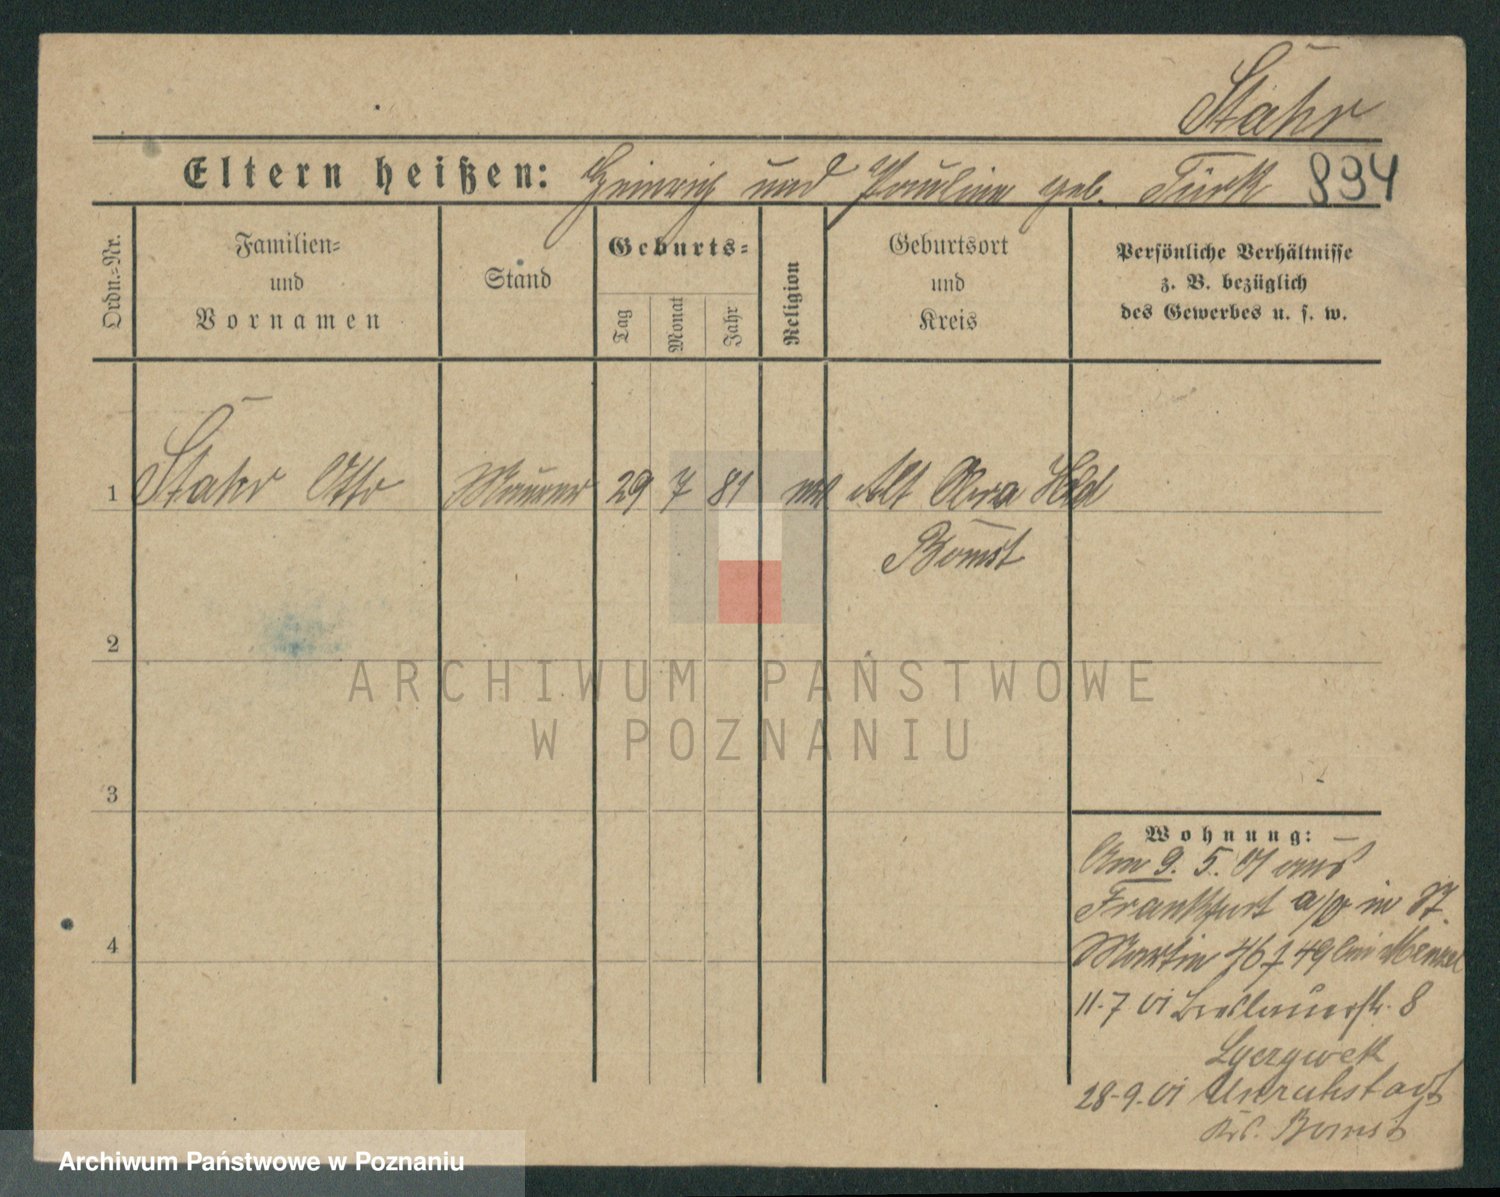 Stahr
Eltern heißen: Heinrich und Pauline geb. Türk 894
Ordn.=Nr.
Familien=
und
Vornamen
Stand
Geburts=
Tag
Monat
Jahr
Religion
Geburtsort
und
Kreis
Persönliche Verhältnisse
z. B. bezüglich
des Gewerbes u. s. w.
1 Stahr Otto Maurer 29 7 81 ev Alt Obra Hld
Bomst
2
ARCHIWUM PAŃSTWOWE
W POZNANIU
3
Wohnung:
Am 9. 5. 01 aus
Frankfurt a/O in St.
Martin 46/49 bei Menzel
11-7 01 Breslauerstr. 8
4
28-9.01 Unruhstadt
Krs. Bomst
Archiwum Państwowe w Poznaniu